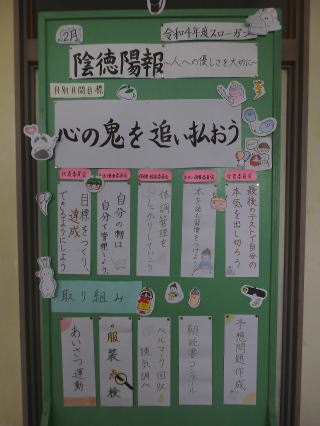 2月
令和4年度スローガン
陰徳陽報
〜人への優しさを大切に〜
月別月間目標
心の鬼を追い払おう
最後のテスト自分の
本気を出し切ろう
本を読む習慣をつけよう
体調管理を
しっかりしていこう
自分の物は
自分で管理しよう
目標をつくり、
達成
できるようにしよう
取り組み
予想問題作成
朝読書コンクール
ベルマーク回収
換気調べ
服装点検
あいさつ運動